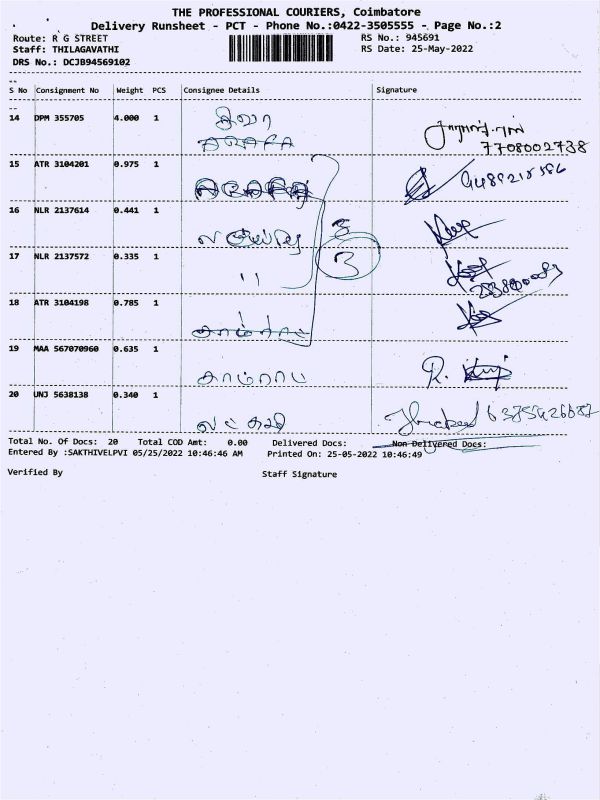 THE PROFESSIONAL COURIERS, Coimbatore
Delivery Runsheet - PCT - Phone No.:0422-3505555 - Page No.:2
Route: R G STREET RS No.: 945691
Staff: THILAGAVATHI RS Date: 25-May-2022
DRS No.: DCJB94569102
S No Consignment No Weight PCS Consignee Details Signature
14 DPM 355705 4.000 1
7708002738
15 ATR 3104201 0.975 1
16 NLR 2137614 0.441 1
3
17 NLR 2137572 0.335 1 " 3
18 ATR 3104198 0.785 1
19 MAA 567070960 0.635 1 காம்ராட் R.
20 UNJ 5638138 0.340 1
Total No. Of Docs: 20 Total COD Amt: 0.00 Delivered Docs: Non Delivered Docs:
Entered By :SAKTHIVELPVI 05/25/2022 10:46:46 AM Printed On: 25-05-2022 10:46:49
Verified By Staff Signature